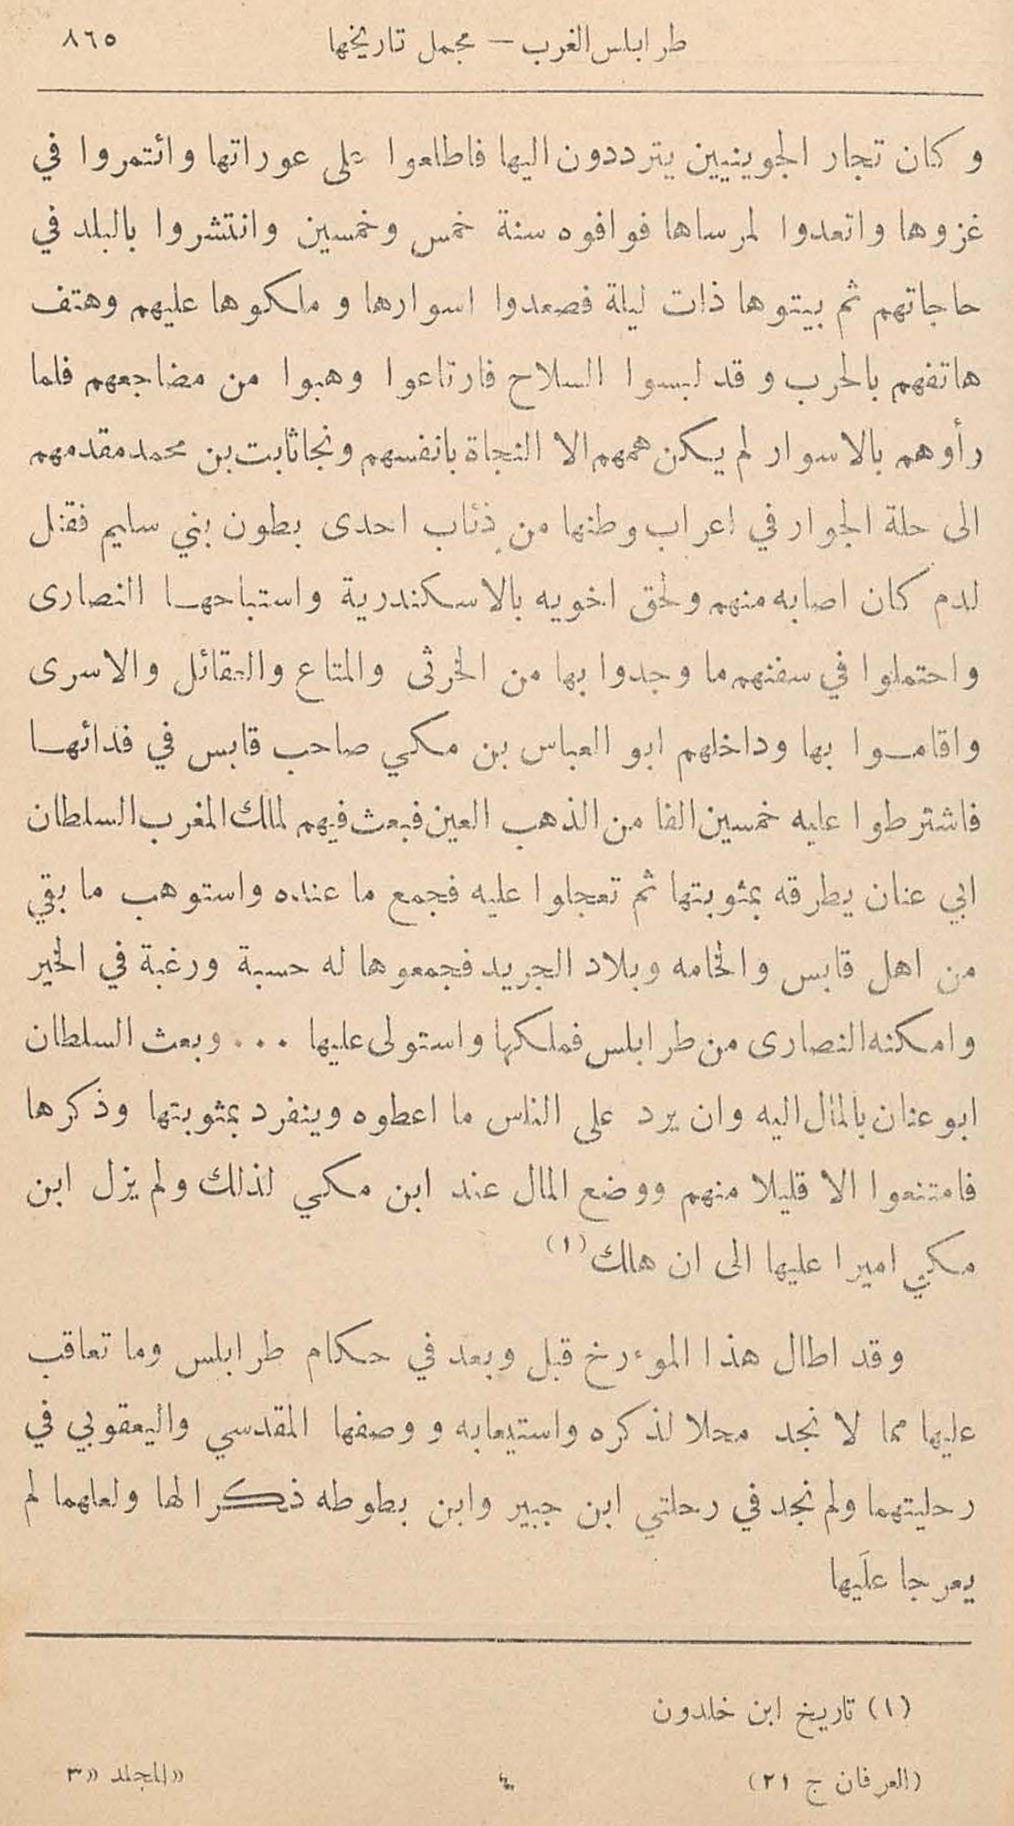 طرابلس الغرب — مجمل تاريخها ٨٦٥
وكان تجار الجوينيين يترددون اليها فاطلعوا على عوراتها وائتمروا في
غزوها واتعدوا لمرساها فوافوه سنة خمس وخمسين وانتشروا بالبلد في
حاجاتهم ثم بيتوها ذات ليلة فصعدوا اسوارها وملكوها عليهم وهتف
هاتفهم بالحرب وقد لبسوا السلاح فارتاعوا وهبوا من مضاجعهم فلما
رأوهم بالاسوار لم يكن همهم الا النجاة بانفسهم ونجا ثابت بن محمد مقدمهم
الى حلة الجوار في اعراب وطنها من ذئاب احدى بطون بني سليم فقتل
لدم كان اصابه منهم ولحق اخويه بالاسكندرية واستباحها النصارى
واحتملوا في سفنهم ما وجدوا بها من الخرثى والمتاع والعقائل والاسرى
واقاموا بها وداخلهم ابو العباس بن مكي صاحب قابس في فدائها
فاشترطوا عليه خمسين الفا من الذهب العين فبعث فيهم لملك المغرب السلطان
ابي عنان يطرقه بمثوبتها ثم تعجلوا عليه فجمع ما عنده واستوهب ما بقي
من اهل قابس والحامه وبلاد الجريد فجمعوها له حسبة ورغبة في الخير
وامكنه النصارى من طرابلس فملكها واستولى عليها ... وبعث السلطان
ابو عنان بالمال اليه وان يرد على الناس ما اعطوه وينفرد بمثوبتها وذكرها
فامتنعوا الا قليلا منهم ووضع المال عند ابن مكي لذلك ولم يزل ابن
مكي اميرا عليها الى ان هلك (١)
وقد اطال هذا الموءرخ قبل وبعد في حكام طرابلس وما تعاقب
عليها مما لا نجد محلا لذكره واستيعابه ووصفها المقدسي واليعقوبي في
رحليتهما ولم نجد في رحلتي ابن جبير وابن بطوطه ذكرا لها ولعلهما لم
يعرجا عليها
(١) تاريخ ابن خلدون
(العرفان ج ٢١) ٤ «المجلد «٣